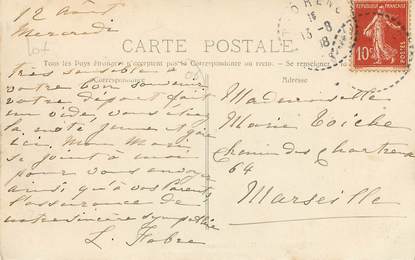 12 Août
Mercredi
Lot
CARTE POSTALE
Tous les Pays étrangers n'acceptent pas la Correspondance au recto. Se renseigner
Correspondance
Adresse
13-8
08
REPUBLIQUE FRANÇAISE
10c
POSTES
très sensible à
votre bon souvenir
votre départ fait
un vide, vous étiez
la note jeune et gaie
ici. Mon Mari
se joint à moi
pour vous envoyer
ainsi qu'à vos Parents
l'assurance de
notre sincère sympathie
L. Fabre
Mademoiselle
Marie
Chemin des Chartreux
64
Marseille